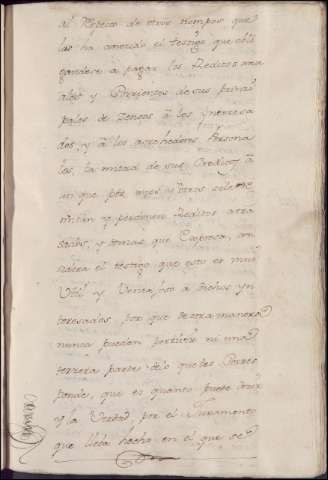 al Respecto de otros tiempos que
las ha conozido el testigo que obli
gandose a pagar los Reditos anu
ales y Corrientes de sus princi
pales de Zensos a los ynteresa
dos y a los acrehedores Persona
les, la mitad de sus Creditos, a
un que por aora y otros se les
y perdonen Reditos atra
sados, y demas que Expresa, con
sidera el testigo que esto es muy
Util y Ventajoso a dichos yn
teresados por que de otra manera
nunca pueden persivir ni una
terzera parte de lo que les Corres
ponde, que es quanto puede dezir
y la Verdad, por el Juramento
que lleba hecho en el que se